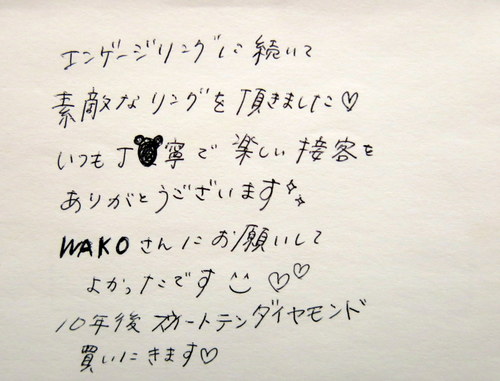 エンゲージリングに続いて
素敵なリングを頂きました♡
いつも丁寧で楽しい接客を
ありがとうございます
WAKOさんにお願いして
よかったです ♡♡
10年後 スイートテンダイヤモンド
買いにきます♡